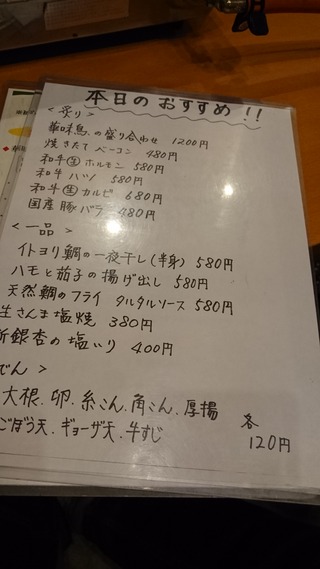 本日のおすすめ!!
<炙り>
華味鳥の盛り合わせ 1200円
焼きたてベーコン 480円
和牛生ホルモン 580円
和牛ハツ 580円
和牛生カルビ 680円
国産豚バラ 480円
<一品>
イトヨリ鯛の一夜干し(半身) 580円
ハモと茄子の揚げ出し 580円
天然鯛のフライ タルタルソース 580円
生さんま塩焼 380円
新銀杏の塩いり 400円
でん>
大根.卵.糸こん.角こん.厚揚
ごぼう天.ギョーザ天.牛すじ
各
120円